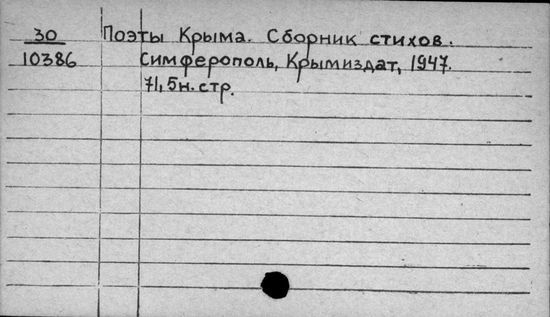 30 Поэты Крыма. Сборник стихов.
10386 Симферополь, Крымиздат, 1947.
71, 5н. стр.